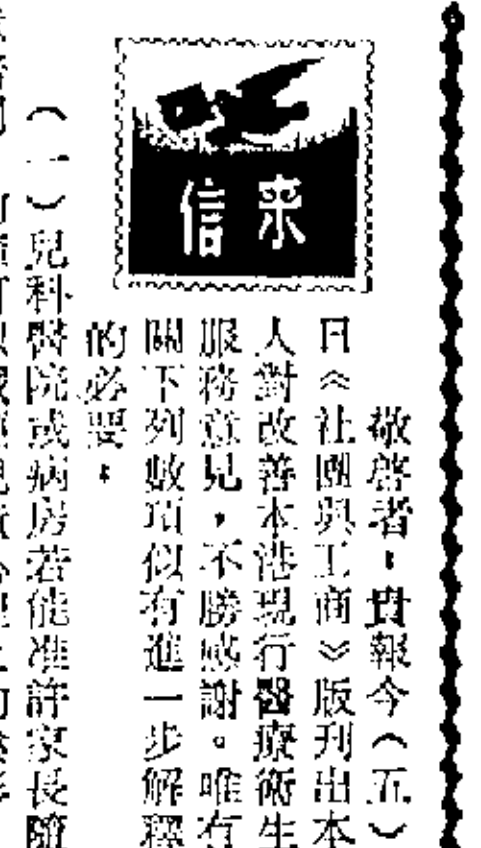 来信
敬啓者：貴報今（五）
日《社團與工商》版刊出本
人對改善本港現行醫療衛生
服務意見，不勝感謝。唯有
關下列數項似有進一步解釋
的必要：
（一）兒科醫院或病房若能准許家長隨